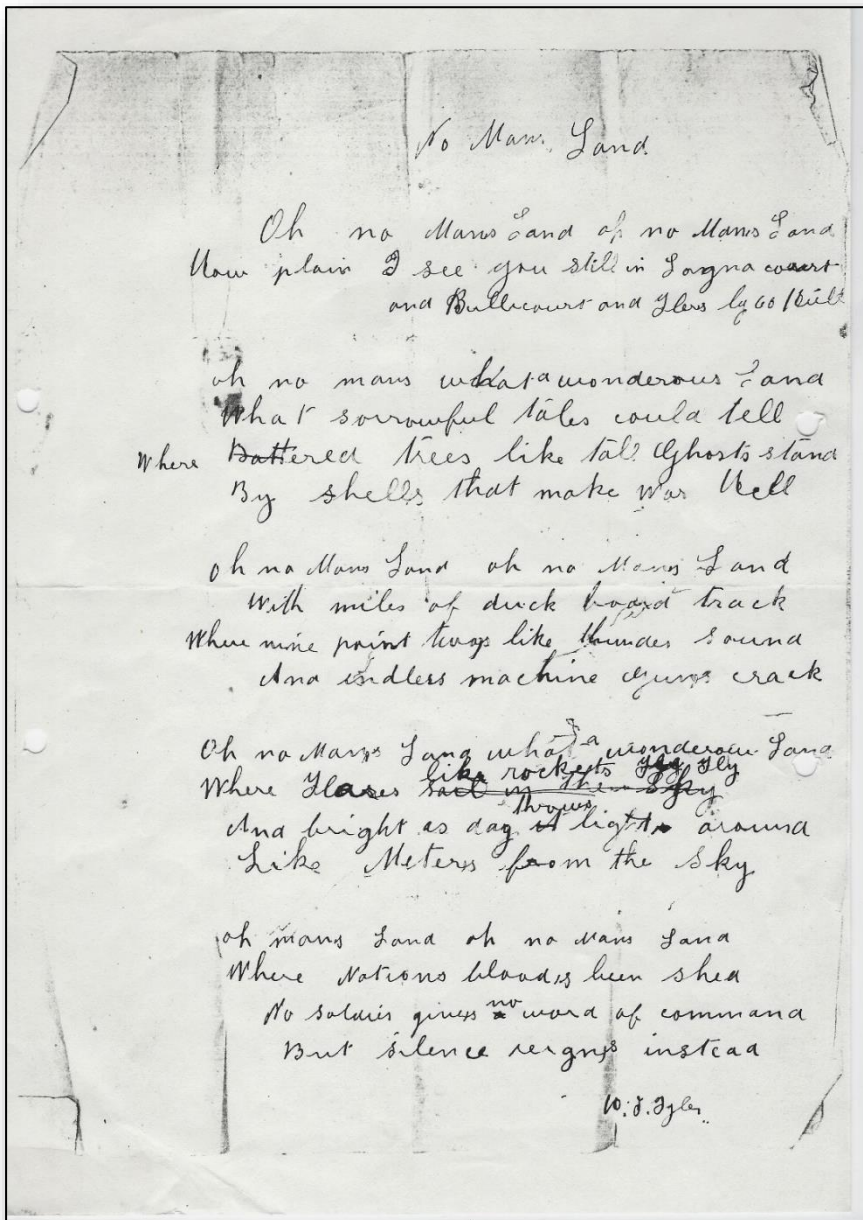 No Mans Land
Oh no Mans Land oh no Mans Land
How plain I see you still in Lagnacourt
and Bullicourt and Flers by 60 Hill
oh no mans what a wonderous Land
What sorrowful tales could tell
Where Battered trees like tall Ghosts stand
By shells that make war Hell
oh no Mans Land oh no Mans Land
With miles of duck board track
Where nine point twos like thunder sound
And endless machine Guns crack
Oh no Mans Land what a wonderous Land
Where Flares like rockets Fly
And bright as day throws light around
Like Meters from the sky
oh mans Land oh no Mans Land
Where Nations bloods been shed
No soldier gives no word of command
But silence reigns instead
W. J. Tyler.